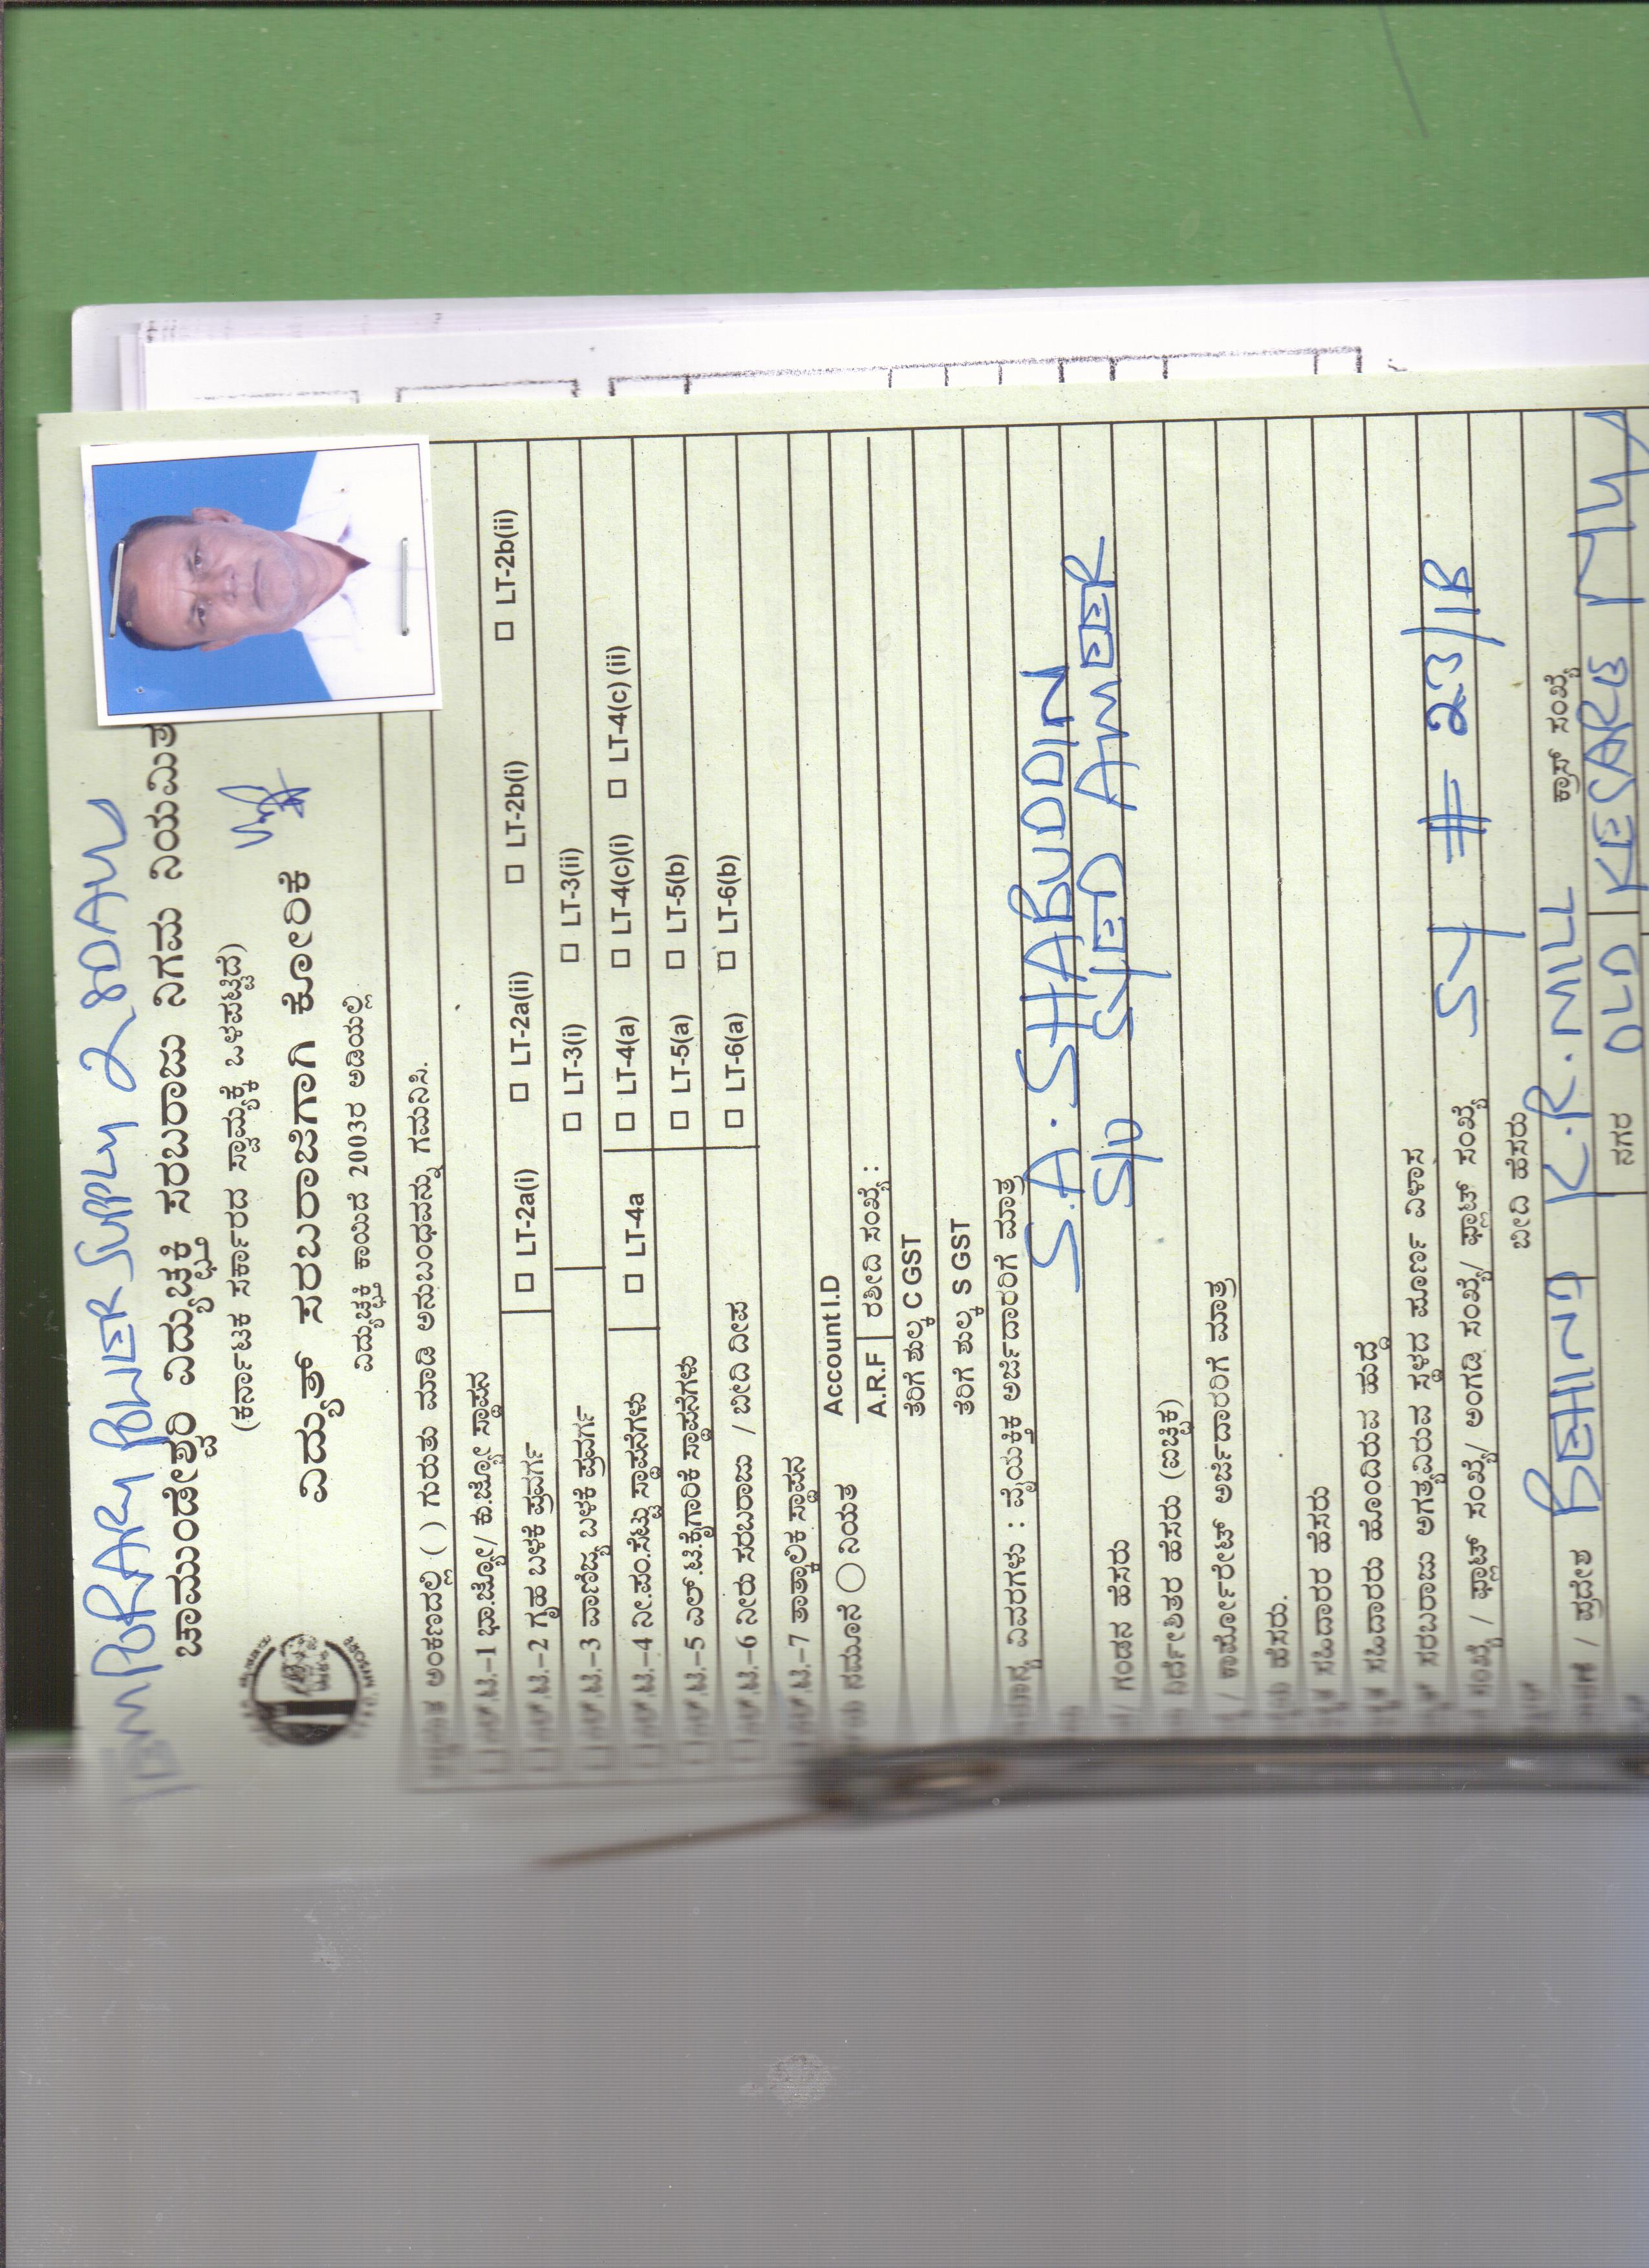 TEMPORARY POWER SUPPLY 28DAYS
ಚಾಮುಂಡೇಶ್ವರಿ ವಿದ್ಯುಚ್ಛಕ್ತಿ ಸರಬರಾಜು ನಿಗಮ ನಿಯಮಿತ
(ಕರ್ನಾಟಕ ಸರ್ಕಾರದ ಸ್ವಾಮ್ಯಕ್ಕೆ ಒಳಪಟ್ಟಿದೆ)
ವಿದ್ಯುತ್ ಸರಬರಾಜಿಗಾಗಿ ಕೋರಿಕೆ
ವಿದ್ಯುಚ್ಛಕ್ತಿ ಕಾಯಿದೆ 2003ರ ಅಡಿಯಲ್ಲಿ
ಅಂಕಣದಲ್ಲಿ ( ) ಗುರುತು ಮಾಡಿ ಅನುಬಂಧವನ್ನು ಗಮನಿಸಿ.
□ ಎಲ್.ಟಿ.–1 ಭಾ.ಜ್ಯೋ/ ಕು.ಜ್ಯೋ ಸ್ಥಾಪನ
□ ಎಲ್.ಟಿ.–2 ಗೃಹ ಬಳಕೆ ಪ್ರವರ್ಗ □ LT-2a(i) □ LT-2a(ii) □ LT-2b(i) □ LT-2b(ii)
□ ಎಲ್.ಟಿ.–3 ವಾಣಿಜ್ಯ ಬಳಕೆ ಪ್ರವರ್ಗ □ LT-3(i) □ LT-3(ii)
□ ಎಲ್.ಟಿ.–4 ನೀ.ಪಂ.ಸೆಟ್ಟು ಸ್ಥಾಪನೆಗಳು □ LT-4a □ LT-4(a) □ LT-4(c)(i) □ LT-4(c) (ii)
□ ಎಲ್.ಟಿ.–5 ಎಲ್.ಟಿ.ಕೈಗಾರಿಕೆ ಸ್ಥಾಪನೆಗಳು □ LT-5(a) □ LT-5(b)
□ ಎಲ್.ಟಿ.–6 ನೀರು ಸರಬರಾಜು / ಬೀದಿ ದೀಪ □ LT-6(a) □ LT-6(b)
ಎಲ್.ಟಿ.–7 ತಾತ್ಕಾಲಿಕ ಸ್ಥಾಪನ
ನಮೂನೆ ○ ನಿಯತ Account I.D
A.R.F ರಶೀದಿ ಸಂಖ್ಯೆ :
ತೆರಿಗೆ ಶುಲ್ಕ C GST
ತೆರಿಗೆ ಶುಲ್ಕ S GST
ವಿವರಗಳು : ವೈಯಕ್ತಿಕ ಅರ್ಜಿದಾರರಿಗೆ ಮಾತ್ರ
S.A. SHABUDDIN
/ ಗಂಡನ ಹೆಸರು S/O SYED AMEER
ನಿರ್ದೇಶಿತರ ಹೆಸರು (ಐಚ್ಛಿಕ)
/ ಕಾರ್ಪೋರೇಟ್ ಅರ್ಜಿದಾರರಿಗೆ ಮಾತ್ರ
ಹೆಸರು.
ಸಹಿದಾರರ ಹೆಸರು
ಸಹಿದಾರರು ಹೊಂದಿರುವ ಹುದ್ದೆ
ಸರಬರಾಜು ಅಗತ್ಯವಿರುವ ಸ್ಥಳದ ಪೂರ್ಣ ವಿಳಾಸ
ಸಂಖ್ಯೆ / ಫ್ಲಾಟ್ ಸಂಖ್ಯೆ/ ಅಂಗಡಿ ಸಂಖ್ಯೆ/ ಪ್ಲಾಟ್ ಸಂಖ್ಯೆ SY # 23/1B
ಬೀದಿ ಹೆಸರು ಕ್ರಾಸ್ ಸಂಖ್ಯೆ
/ ಪ್ರದೇಶ BEHIND K.R. MILL
ನಗರ OLD KESARE